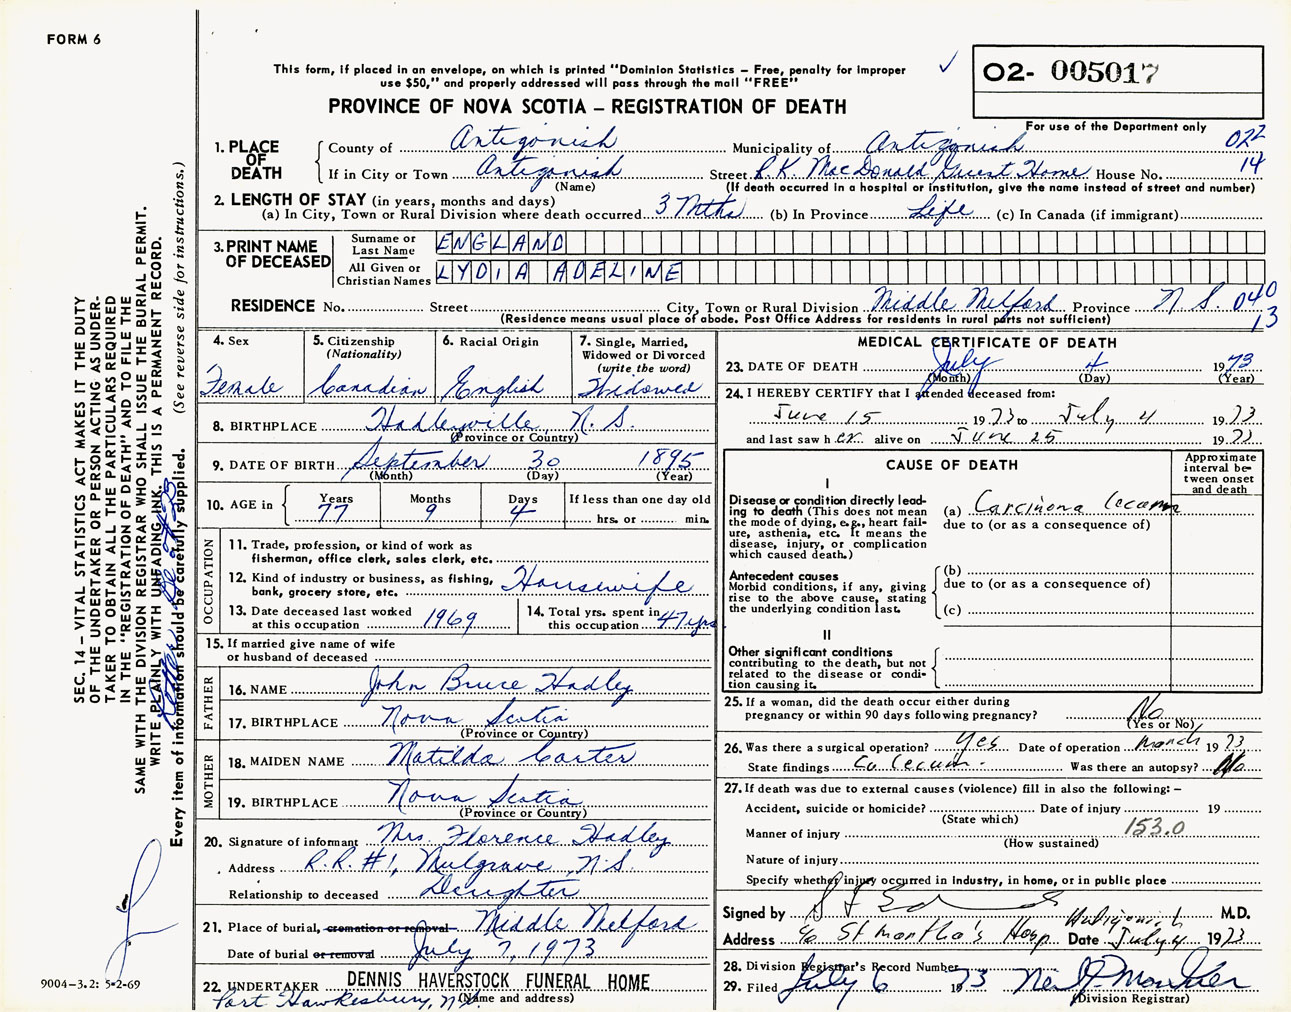 FORM 6
This form, if placed in an envelope, on which is printed "Dominion Statistics – Free, penalty for improper
use $50," and properly addressed will pass through the mail "FREE"
PROVINCE OF NOVA SCOTIA – REGISTRATION OF DEATH
O2- 005017
For use of the Department only
022
14
1. PLACE OF DEATH
County of Antigonish Municipality of Antigonish
If in City or Town Antigonish Street R.K. MacDonald Guest Home House No.
(Name) (If death occurred in a hospital or institution, give the name instead of street and number)
2. LENGTH OF STAY (in years, months and days)
(a) In City, Town or Rural Division where death occurred 3 Mths (b) In Province Life (c) In Canada (if immigrant)
3. PRINT NAME OF DECEASED
Surname or Last Name ENGLAND
All Given or Christian Names LYDIA ADELINE
RESIDENCE No. Street City, Town or Rural Division Middle Melford Province N.S. 040
13
(Residence means usual place of abode. Post Office Address for residents in rural parts not sufficient)
4. Sex
Female
5. Citizenship
(Nationality)
Canadian
6. Racial Origin
English
7. Single, Married,
Widowed or Divorced
(write the word)
Widowed
8. BIRTHPLACE Hadleyville, N.S.
(Province or Country)
9. DATE OF BIRTH September 30 1895
(Month) (Day) (Year)
10. AGE in
Years Months Days If less than one day old
77 9 4 hrs. or min.
OCCUPATION
11. Trade, profession, or kind of work as
fisherman, office clerk, sales clerk, etc.
12. Kind of industry or business, as fishing,
bank, grocery store, etc. Housewife
13. Date deceased last worked
at this occupation 1969
14. Total yrs. spent in
this occupation 47 yrs
15. If married give name of wife
or husband of deceased
FATHER
16. NAME John Bruce Hadley
17. BIRTHPLACE Nova Scotia
(Province or Country)
MOTHER
18. MAIDEN NAME Matilda Carter
19. BIRTHPLACE Nova Scotia
(Province or Country)
20. Signature of informant Mrs. Florence Hadley
Address R.R. #1, Mulgrave, N.S.
Relationship to deceased Daughter
21. Place of burial, cremation or removal Middle Melford
Date of burial or removal July 7, 1973
22. UNDERTAKER DENNIS HAVERSTOCK FUNERAL HOME
Port Hawkesbury, N.S. (Name and address)
MEDICAL CERTIFICATE OF DEATH
23. DATE OF DEATH July 4 1973
(Month) (Day) (Year)
24. I HEREBY CERTIFY that I attended deceased from:
June 15 1973 to July 4 1973
and last saw her alive on June 25 1973
CAUSE OF DEATH
Approximate
interval be-
tween onset
and death
I
Disease or condition directly lead-
ing to death (This does not mean
the mode of dying, e.g., heart fail-
ure, asthenia, etc. It means the
disease, injury, or complication
which caused death.)
(a) Carcinoma Cecum
due to (or as a consequence of)
Antecedent causes
Morbid conditions, if any, giving
rise to the above cause, stating
the underlying condition last.
(b)
due to (or as a consequence of)
(c)
II
Other significant conditions
contributing to the death, but not
related to the disease or condi-
tion causing it.
25. If a woman, did the death occur either during
pregnancy or within 90 days following pregnancy? No
(Yes or No)
26. Was there a surgical operation? Yes Date of operation March 1973
State findings Ca Cecum. Was there an autopsy? No
27. If death was due to external causes (violence) fill in also the following: –
Accident, suicide or homicide? Date of injury 19
(State which)
Manner of injury 153.0
(How sustained)
Nature of injury
Specify whether injury occurred in industry, in home, or in public place
Signed by M.D.
Address c/o St Martha's Hosp Antigonish Date July 4 1973
28. Division Registrar's Record Number
29. Filed July 6 1973
(Division Registrar)
SEC. 14 – VITAL STATISTICS ACT MAKES IT THE DUTY
OF THE UNDERTAKER OR PERSON ACTING AS UNDER-
TAKER TO OBTAIN ALL THE PARTICULARS REQUIRED
IN THE "REGISTRATION OF DEATH" AND TO FILE THE
SAME WITH THE DIVISION REGISTRAR WHO SHALL ISSUE THE BURIAL PERMIT.
WRITE PLAINLY WITH UNFADING INK. THIS IS A PERMANENT RECORD.
Every item of information should be carefully supplied. (See reverse side for instructions.)
9004-3.2: 5-2-69